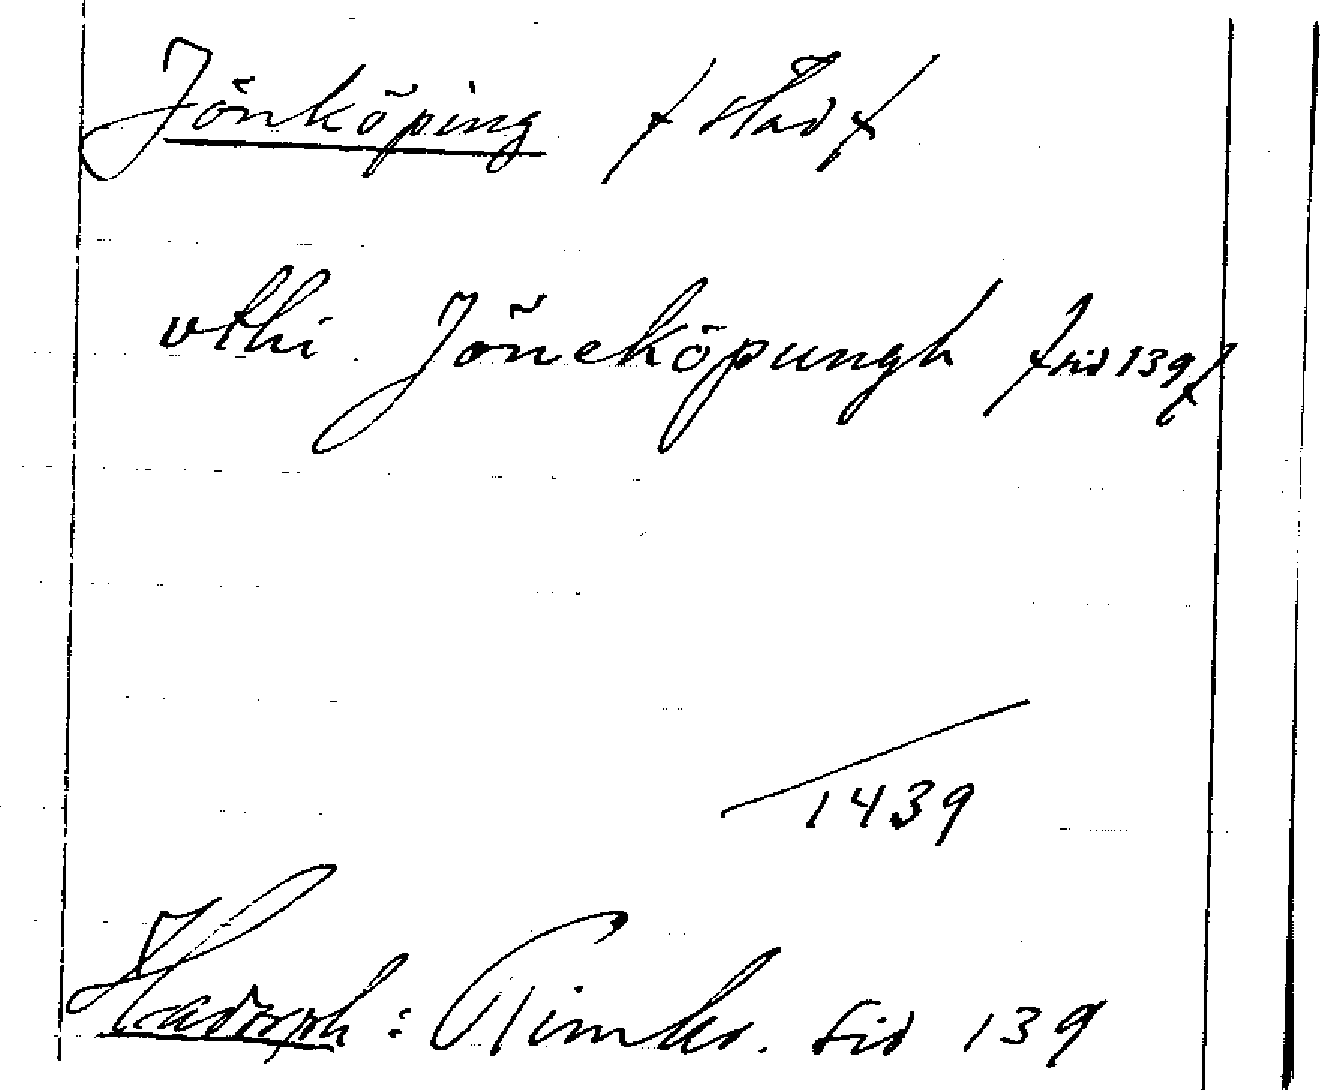 Jönköping / stad /
vthi Jöneköpungh / sid 139 /
1439
Hadorph: Rimkr. sid 139